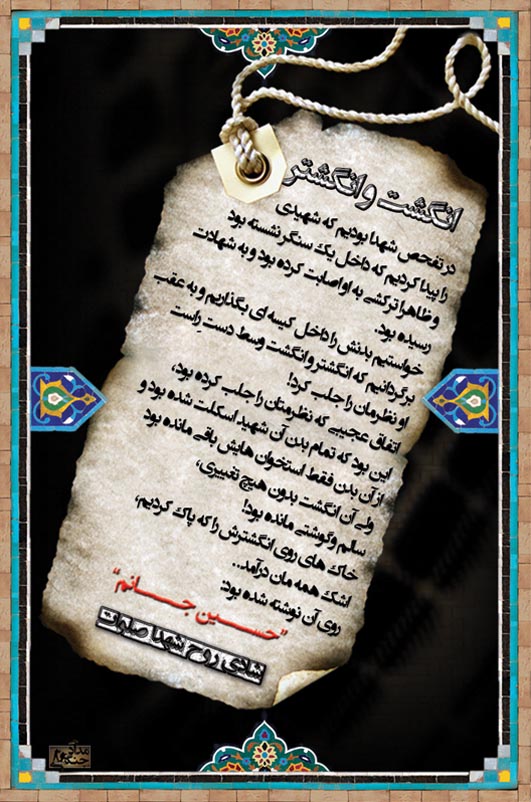 انگشت و انگشتر
در تفحص شهدا بودیم که شهیدی
را پیدا کردیم که داخل یک سنگر نشسته بود
و ظاهرا ترکشی به او اصابت کرده بود و به شهادت
رسیده بود.
خواستیم بدنش را داخل کیسه ای بگذاریم و به عقب
برگردانیم که انگشتر و انگشت وسط دست راست
او نظرمان را جلب کرد!
اتفاق عجیبی که نظرمتان را جلب کرده بود،
این بود که تمام بدن آن شهید اسکلت شده بود و
از آن بدن فقط استخوان هایش باقی مانده بود
ولی آن انگشت بدون هیچ تغییری،
سالم و گوشتی مانده بود!
خاک های روی انگشترش را که پاک کردیم،
اشک همه مان درآمد...
روی آن نوشته شده بود:
"حسین جانم"
شادی روح شهدا صلوات